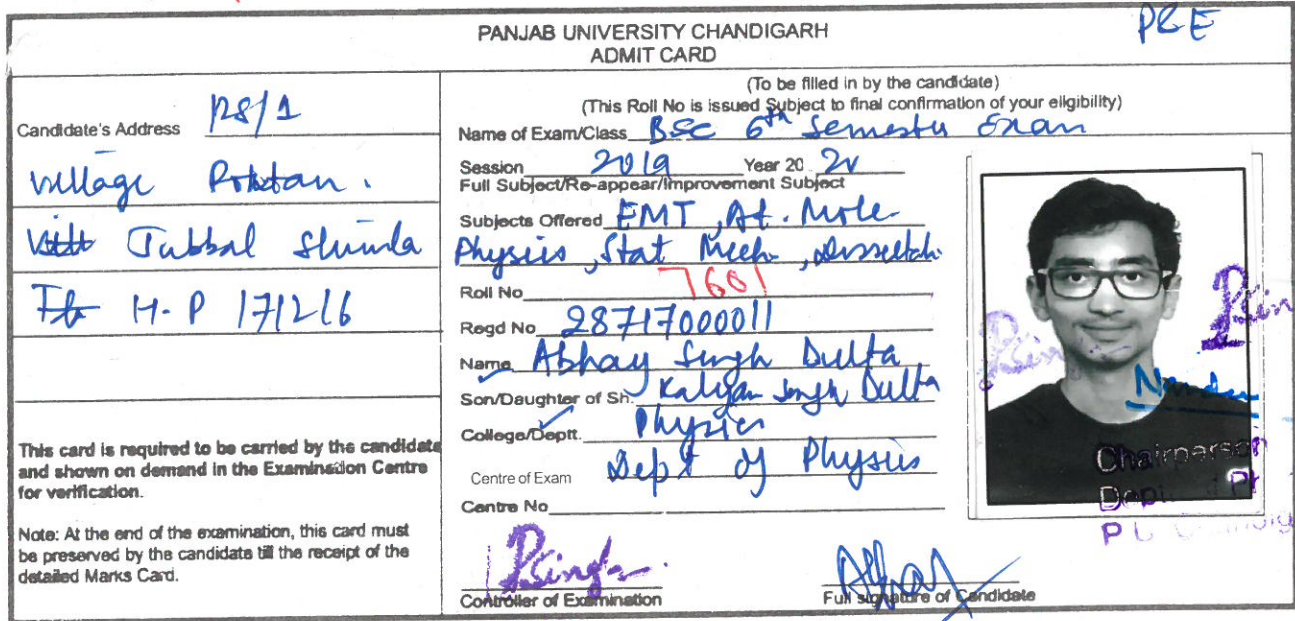 PRE
PANJAB UNIVERSITY CHANDIGARH
ADMIT CARD
Candidate's Address 128/1
village
Jubbal Shimla
H.P 171216
This card is required to be carried by the candidate
and shown on demand in the Examination Centre
for verification.
Note: At the end of the examination, this card must
be preserved by the candidate till the receipt of the
detailed Marks Card.
(To be filled in by the candidate)
(This Roll No is issued Subject to final confirmation of your eligibility)
Name of Exam/Class BSC 6th Semester Exam
Session 2019 Year 20 20
Full Subject/Re-appear/Improvement Subject
Subjects Offered EMT, At. Mole-
Physics, Stat Mech,
Roll No 7601
Regd No 28717000011
Name Abhay Singh Dulta
Son/Daughter of Sh. Kalyan Singh Dulta
College/Deptt. Physics
Centre of Exam Dept of Physics
Centre No
PSingh
Controller of Examination
Abhay
Full signature of Candidate
PSin
Chairperson